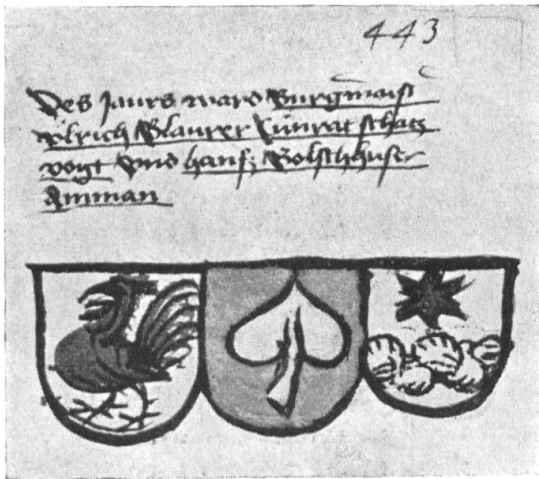 443
Des Jaurs ward Burgmaist
Ulrich Blaurer Cunrat schatz
vogt vnd hans Bolschhuser
Amman